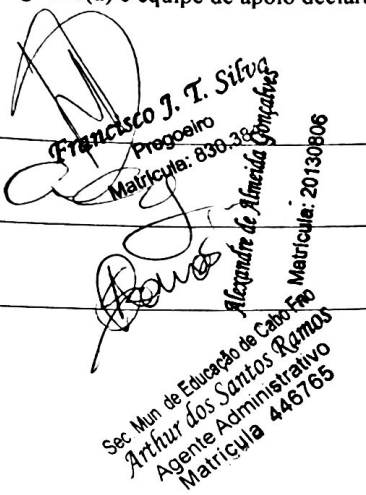 e equipe de apoio declara
Francisco J. T. Silva
Pregoeiro
Matrícula: 830.38
Alexandre de Almeida Gonçalves
Matrícula: 20130806
Sec Mun de Educação de Cabo Frio
Arthur dos Santos Ramos
Agente Administrativo
Matrícula 446765